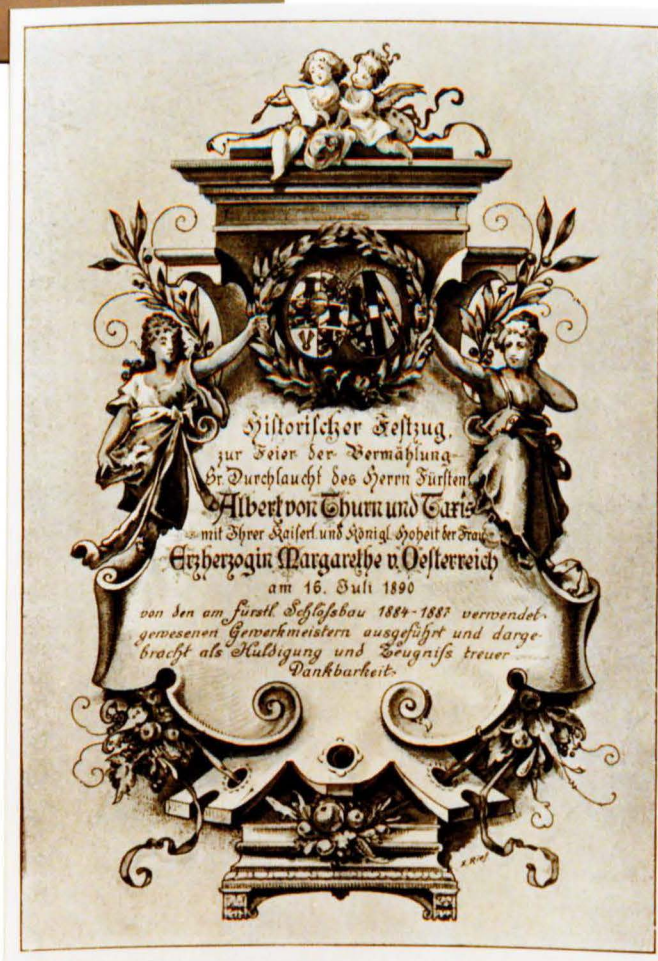 Historischer Festzug,
zur Feier der Vermählung
Sr. Durchlaucht des Herrn Fürsten
Albert von Thurn und Taxis
mit Ihrer Kaiserl. und Königl. Hoheit der Frau
Erzherzogin Margarethe v. Oesterreich
am 16. Juli 1890
von den am fürstl. Schloßbau 1884-1887 verwendet
gewesenen Gewerkmeistern ausgeführt und darge-
bracht als Huldigung und Zeugniß treuer
Dankbarkeit.